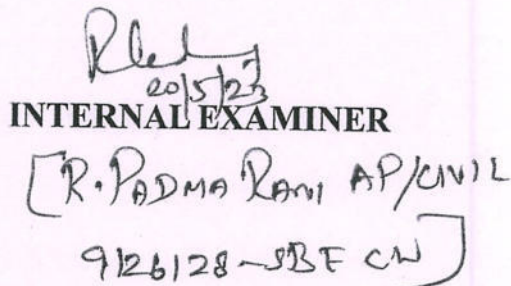 20/5/23
INTERNAL EXAMINER
[R. PADMA RANI AP/CIVIL
9126128-SBECW]